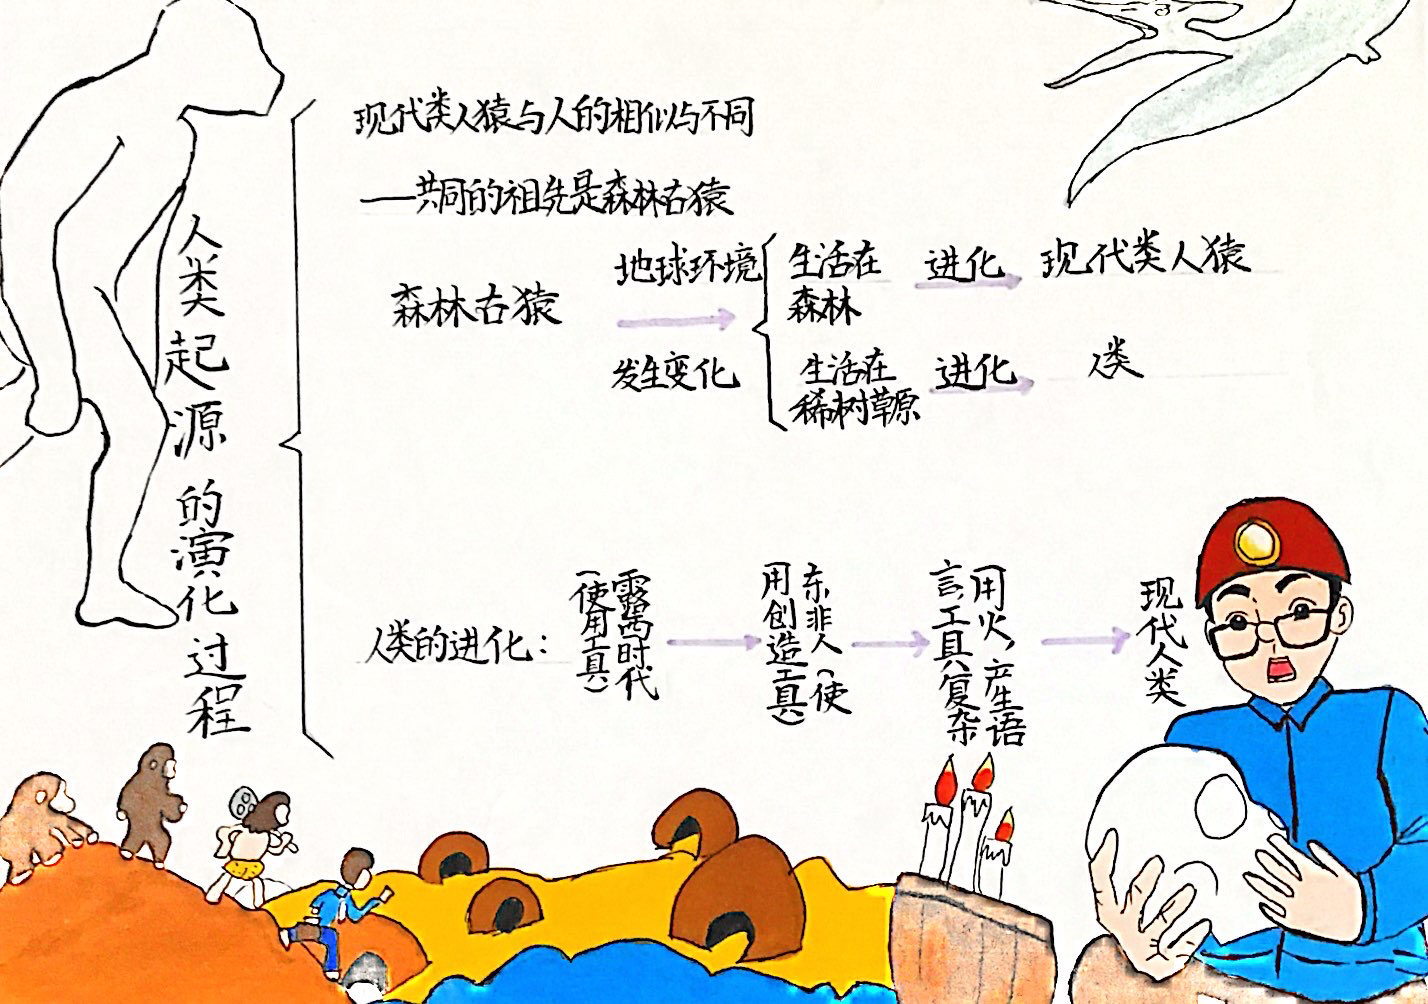 人类起源的演化过程
现代类人猿与人的相似与不同
——共同的祖先是森林古猿
森林古猿
地球环境
发生变化
生活在
森林
进化
现代类人猿
生活在
稀树草原
进化
人类
人类的进化：
露时代
（使用工具）
东非人（使
用创造工具）
用火，产生语
言，工具复杂
现代人类